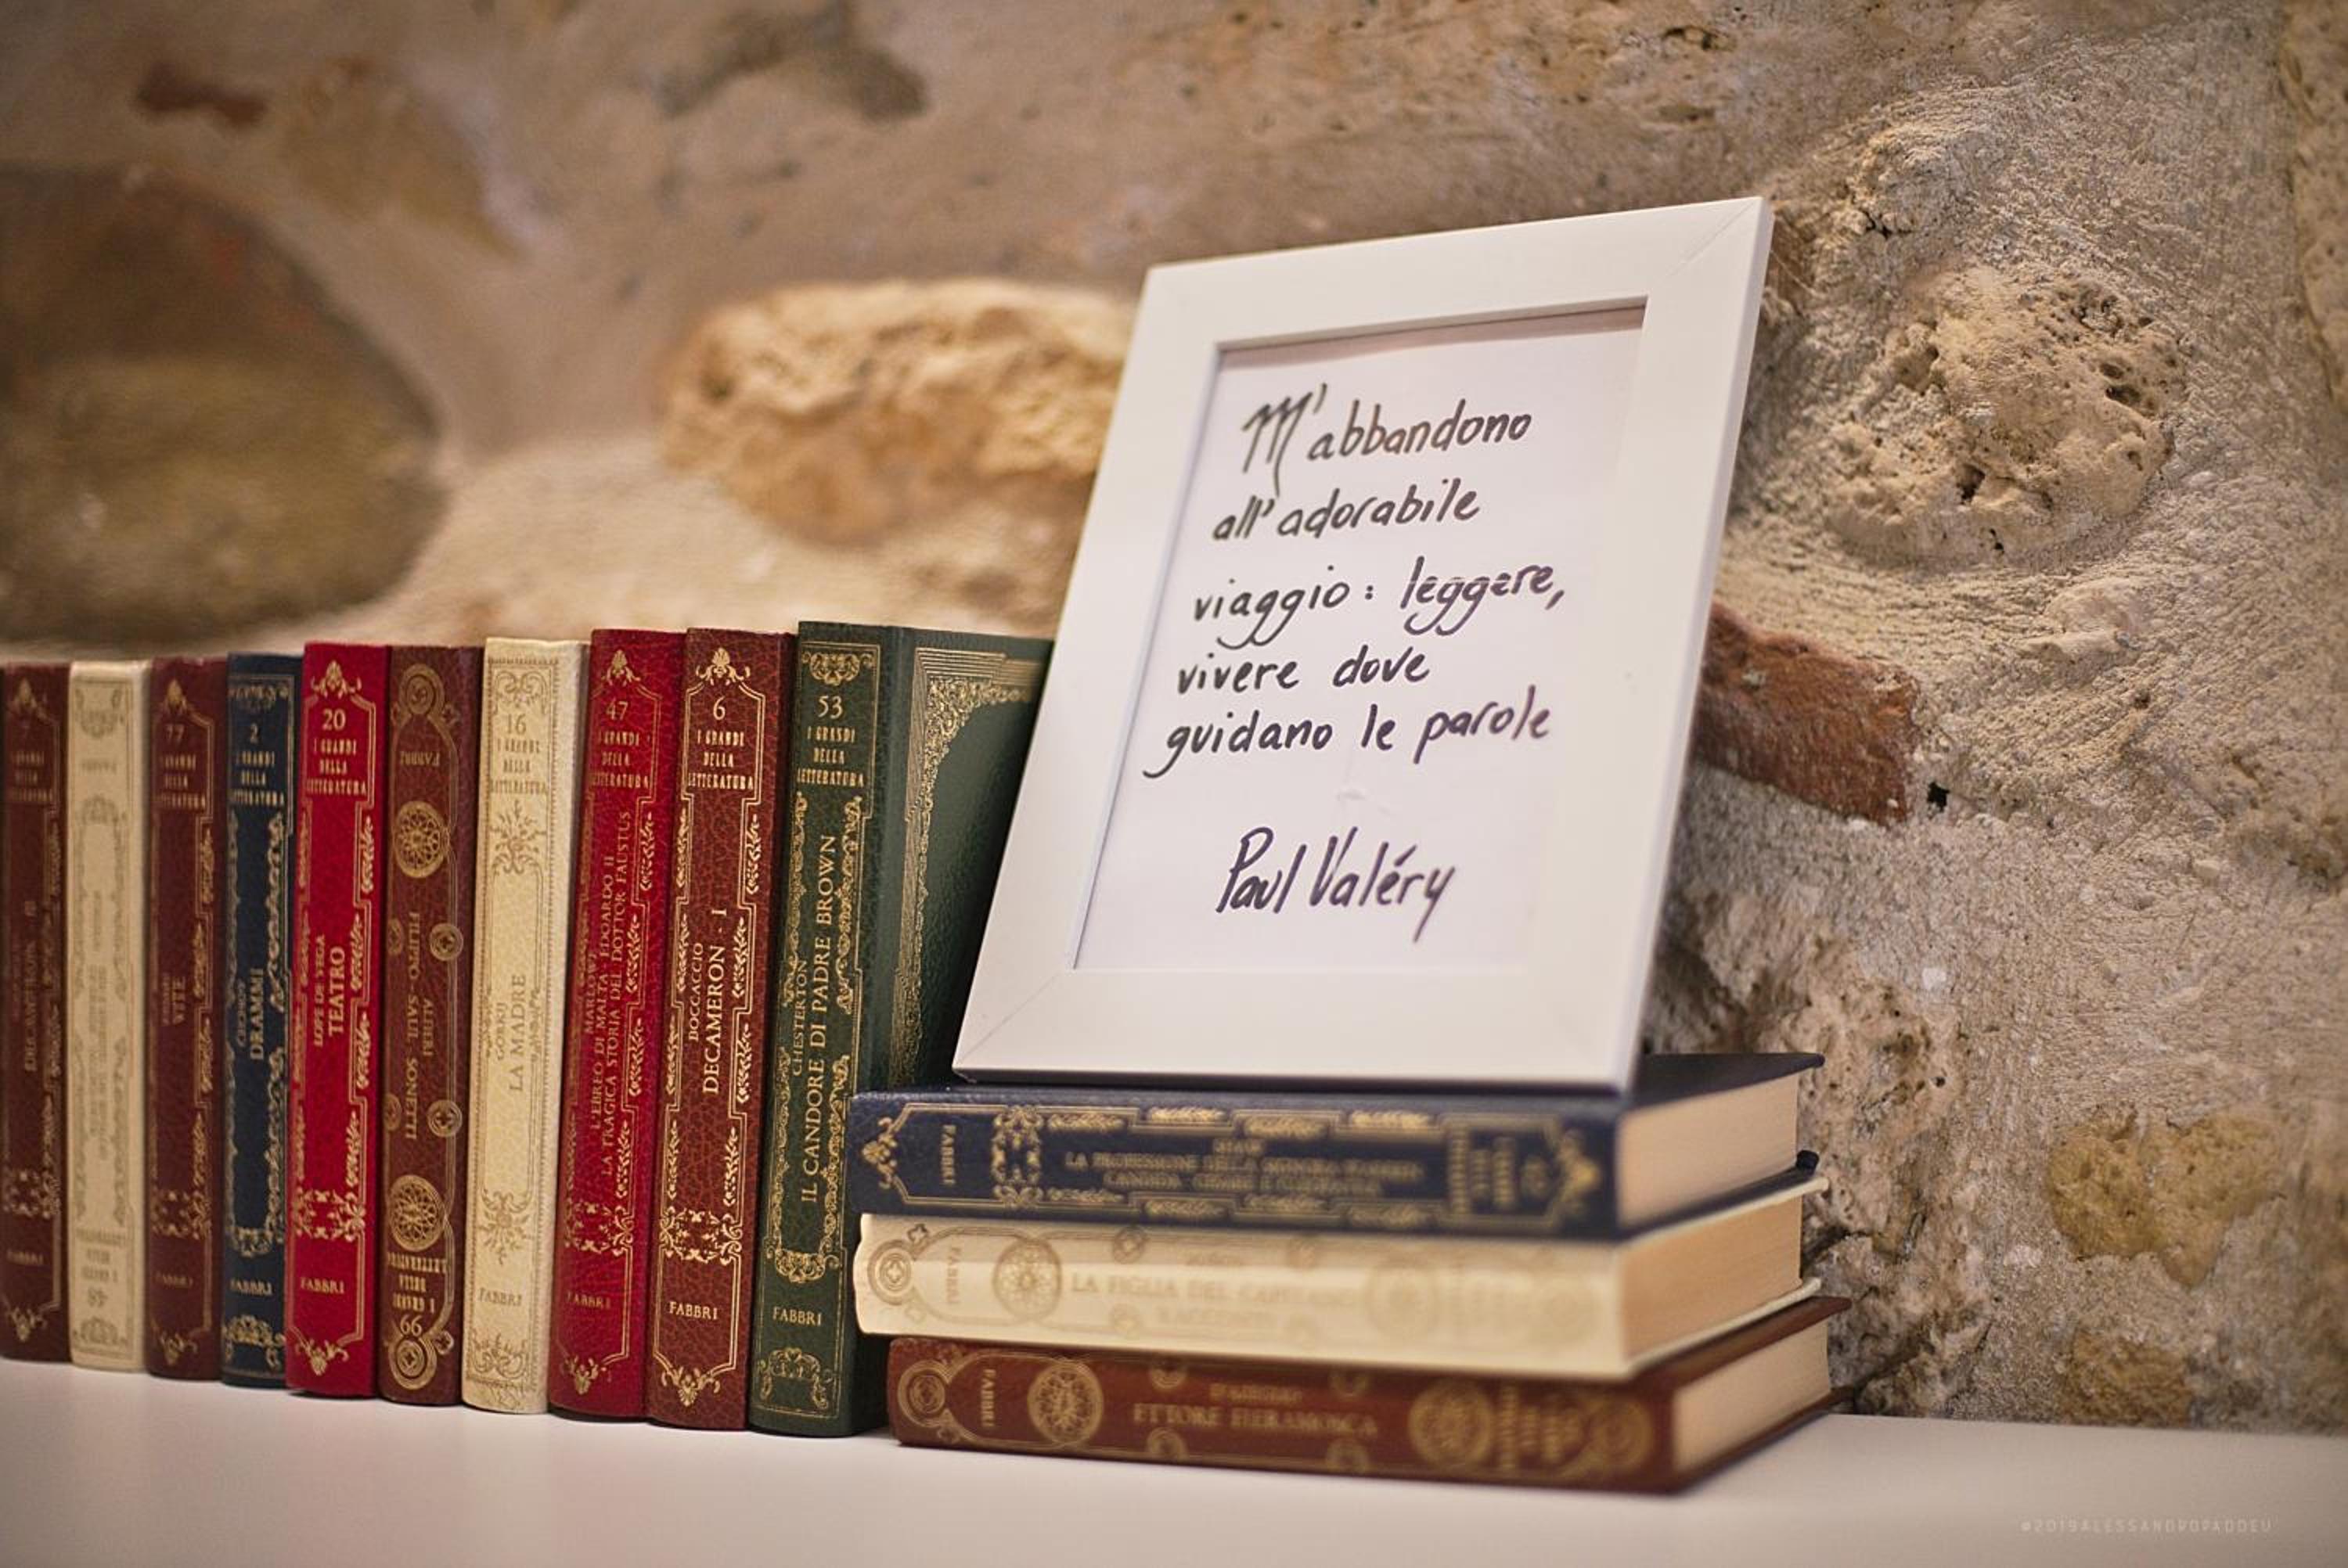 M'abbandono
all'adorabile
viaggio: leggere,
vivere dove
guidano le parole
Paul Valéry
77
VITE
FABBRI
2
I GRANDI
DELLA
LETTERATURA
DRAMMI
FABBRI
20
I GRANDI
DELLA
LETTERATURA
LOPE DE VEGA
TEATRO
FABBRI
FABBRI
FILIPPO - SAUL SONETTI
ALFIERI
I GRANDI
DELLA
LETTERATURA
66
16
I GRANDI
DELLA
LETTERATURA
GORKIJ
LA MADRE
FABBRI
47
I GRANDI
DELLA
LETTERATURA
MARLOWE
L'EBREO DI MALTA EDOARDO II
LA TRAGICA STORIA DEL DOTTOR FAUSTUS
FABBRI
6
I GRANDI
DELLA
LETTERATURA
BOCCACCIO
DECAMERON - I
FABBRI
53
I GRANDI
DELLA
LETTERATURA
CHESTERTON
IL CANDORE DI PADRE BROWN
FABBRI
FABBRI
SHAW
LA PROFESSIONE DELLA SIGNORA WARREN
FABBRI
LA FIGLIA DEL CAPITANO
RACCONTI
FABBRI
ETTORE FIERAMOSCA
©2019ALESSANDROPADDEU